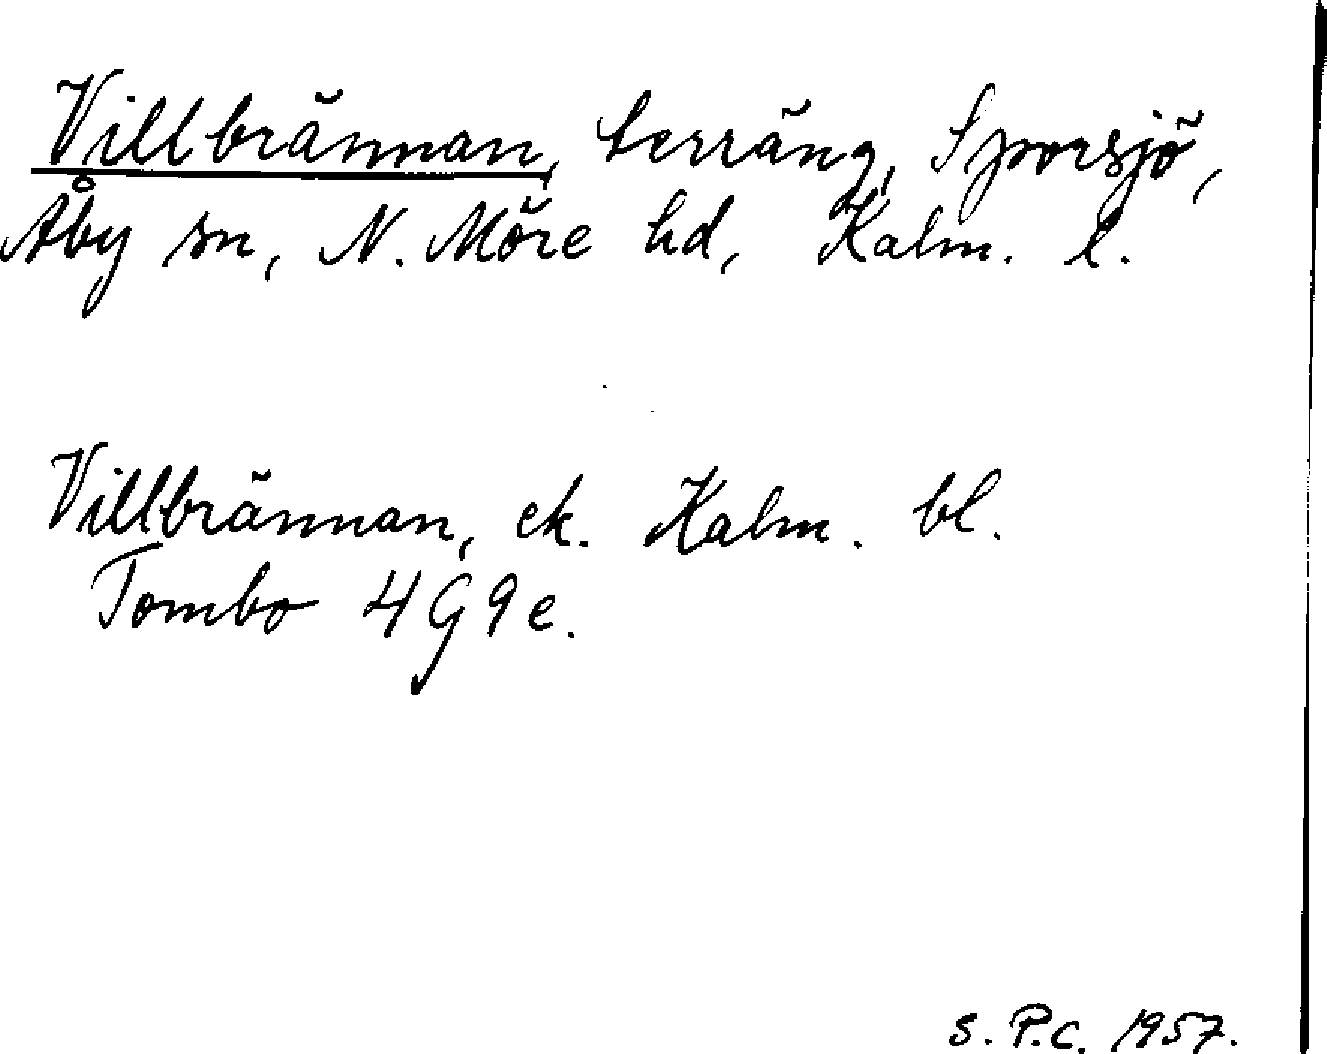 Villbrännan, terräng, Sporsjö,
Åby sn, N. Möre hd, Kalm. l.
Villbrännan, ek. Kalm. bl.
Tombo 4G9e.
S. P.C. 1957.